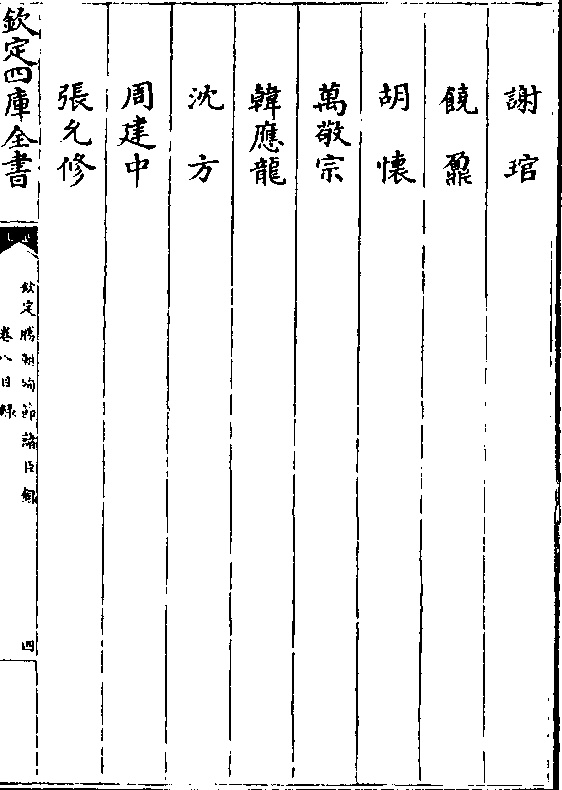 謝琯
饒鼐
胡懷
萬敬宗
韓應龍
沈方
周建中
張允修
欽定四庫全書
欽定勝朝殉節諸臣錄
卷八目錄
四